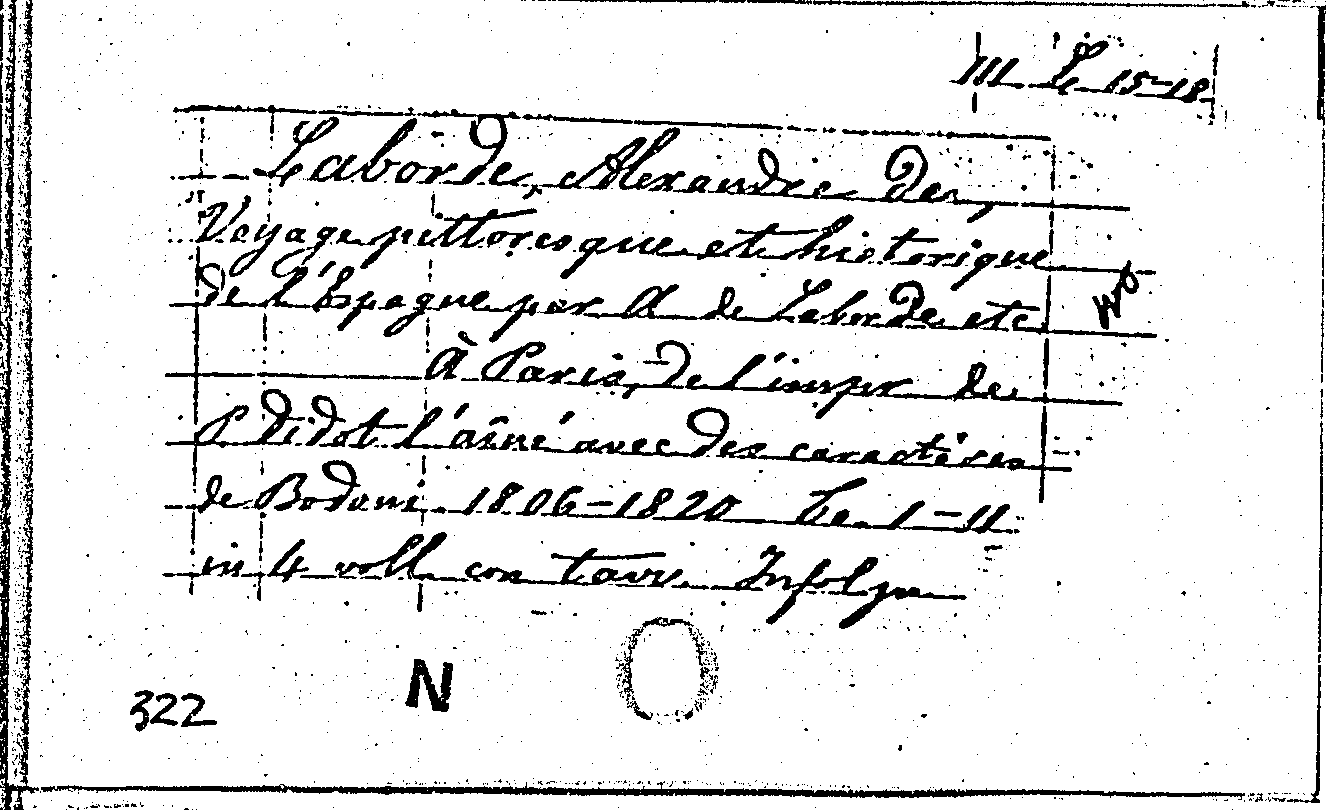 III Le 15-18
Laborde, Alexandre de,
Voyage pittoresque et historique
de l'Espagne par A de Laborde etc
À Paris, de l'impr de
P Didot l'aîné avec des caractères
de Bodoni. 1806-1820 1-11
in 4 voll con tavv. Infol
N
322